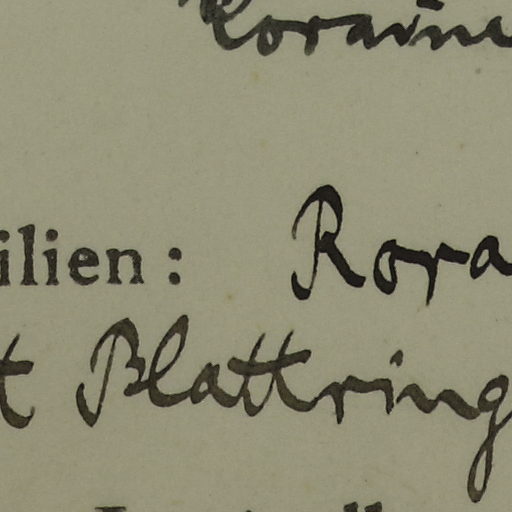 Roraim
ilien: Rora
t Blattring